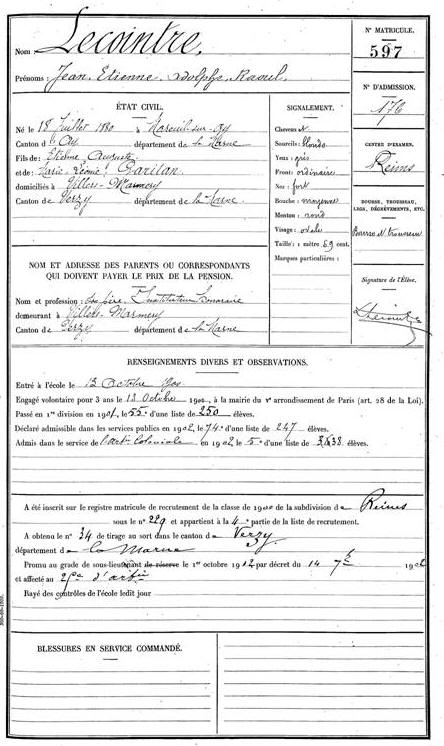 Nom Lecointre.
Prénoms : Jean Etienne Adolphe Raoul.
N° MATRICULE.
597
N° D'ADMISSION.
176
CENTRE D'EXAMEN.
Reims
BOURSE, TROUSSEAU,
LEGS, DÉGRÈVEMENTS, ETC.
Bourse et trousseau
Signature de l'Élève.
Lecointre
ÉTAT CIVIL.
Né le 18 Juillet 1880 à Mareuil-sur-Ay
Canton d' Ay département de la Marne
Fils de : Etienne Auguste
et de : Marie Léonie
domiciliés à Villers-Marmery
Canton de Verzy département de la Marne.
SIGNALEMENT.
Cheveux et
Sourcils : blonds
Yeux : gris
Front : ordinaire
Nez : fort
Bouche : moyenne
Menton : rond
Visage : ovale
Taille : 1 mètre 59 cent.
Marques particulières :
NOM ET ADRESSE DES PARENTS OU CORRESPONDANTS
QUI DOIVENT PAYER LE PRIX DE LA PENSION.
Nom et profession : père, Instituteur honoraire
demeurant à Villers-Marmery
Canton de Verzy département de la Marne
RENSEIGNEMENTS DIVERS ET OBSERVATIONS.
Entré à l'école le 13 Octobre 1900
Engagé volontaire pour 3 ans le 13 Octobre 1900, à la mairie du Ve arrondissement de Paris (art. 28 de la Loi).
Passé en 1re division en 1901, le 55e d'une liste de 250 élèves.
Déclaré admissible dans les services publics en 1902, le 74e d'une liste de 247 élèves.
Admis dans le service de l'Artie Coloniale en 1902 le 5e d'une liste de 38 élèves.
A été inscrit sur le registre matricule de recrutement de la classe de 1900 de la subdivision de Reims
sous le n° 229 et appartient à la 4e partie de la liste de recrutement.
A obtenu le n° 34 de tirage au sort dans le canton de Verzy,
département de la Marne
Promu au grade de sous-lieutenant de réserve le 1er octobre 1902 par décret du 14 7bre 1902
et affecté au d'artie
Rayé des contrôles de l'école ledit jour
BLESSURES EN SERVICE COMMANDÉ.